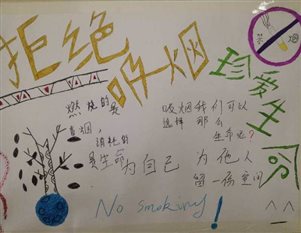 拒绝吸烟
珍爱生命
禁烟
燃烧的是
香烟，
消耗的
是生命
吸烟我们可以
选择 那么
生存呢？
为自己 为他人
留一份空间
No smoking!